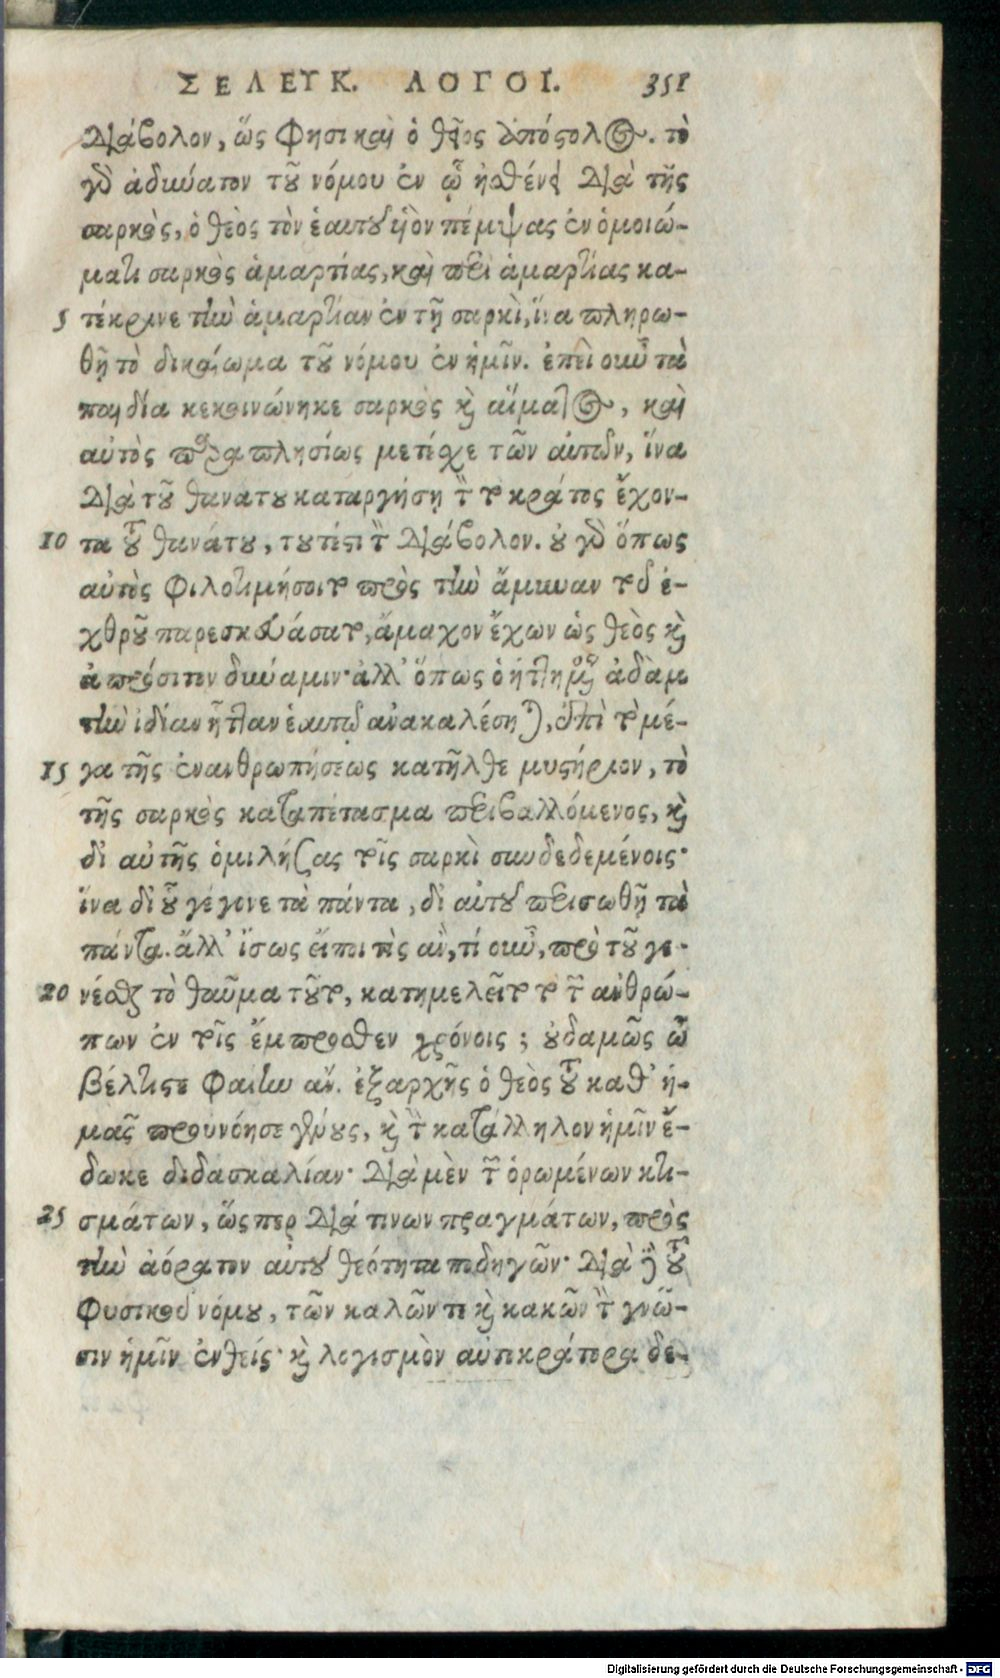 ΣΕΛΕΥΚ. ΛΟΓΟΙ. 351
διάβολον, ὥς φησι καὶ ὁ θεῖος ἀπόστολος. τὸ
γὰρ ἀδύνατον τοῦ νόμου ἐν ᾧ ἠσθένει διὰ τῆς
σαρκὸς, ὁ θεὸς τὸν ἑαυτοῦ υἱὸν πέμψας ἐν ὁμοιώ-
ματι σαρκὸς ἁμαρτίας, καὶ περὶ ἁμαρτίας κα-
5 τέκρινε τὴν ἁμαρτίαν ἐν τῇ σαρκὶ, ἵνα πληρω-
θῇ τὸ δικαίωμα τοῦ νόμου ἐν ἡμῖν. ἐπεὶ οὖν τὰ
παιδία κεκοινώνηκε σαρκὸς καὶ αἵματος, καὶ
αὐτὸς παραπλησίως μετέχε τῶν αὐτῶν, ἵνα
διὰ τοῦ θανάτου καταργήσῃ τὸν τὸ κράτος ἔχον-
10 τα τοῦ θανάτου, τουτέστι τὸν διάβολον. οὐ γὰρ ὅπως
αὐτὸς φιλοτιμήσοιτο πρὸς τὴν ἄμυναν τοῦ ἐ-
χθροῦ παρεσκευάσατο, ἄμαχον ἔχων ὡς θεὸς καὶ
ἀπρόσιτον δύναμιν· ἀλλ' ὅπως ὁ ἡττημένος ἀδὰμ
τὴν ἰδίαν ἧτταν ἑαυτῷ ἀνακαλέσηται, ἐπὶ τὸ μέ-
15 γα τῆς ἐνανθρωπήσεως κατῆλθε μυστήριον, τὸ
τῆς σαρκὸς καταπέτασμα περιβαλλόμενος, καὶ
δι' αὐτῆς ὁμιλήσας τοῖς σαρκὶ συνδεδεμένοις·
ἵνα δι' οὗ γέγονε τὰ πάντα, δι' αὐτοῦ περισωθῇ τὰ
πάντα. ἀλλ' ἴσως εἴποι τὶς ἂν, τί οὖν, πρὸ τοῦ γε-
20 νέσθαι τὸ θαῦμα τοῦτο, κατημελεῖτο τὸ τῶν ἀνθρώ-
πων ἐν τοῖς ἔμπροσθεν χρόνοις; οὐδαμῶς ὦ
βέλτιστε φαίην ἄν. ἐξαρχῆς ὁ θεὸς τοῦ καθ' ἡ-
μᾶς προυνόησε γένους, καὶ τὴν κατάλληλον ἡμῖν ἔ-
δωκε διδασκαλίαν· διὰ μὲν τῶν ὁρωμένων κτι-
25 σμάτων, ὥσπερ διά τινων πραγμάτων, πρὸς
τὴν ἀόρατον αὐτοῦ θεότητα ποδηγῶν· διὰ δὲ τοῦ
φυσικοῦ νόμου, τῶν καλῶν τε καὶ κακῶν τὴν γνῶ-
σιν ἡμῖν ἐνθείς· καὶ λογισμὸν αὐτοκράτορα δε-
Digitalisierung gefördert durch die Deutsche Forschungsgemeinschaft - DFG